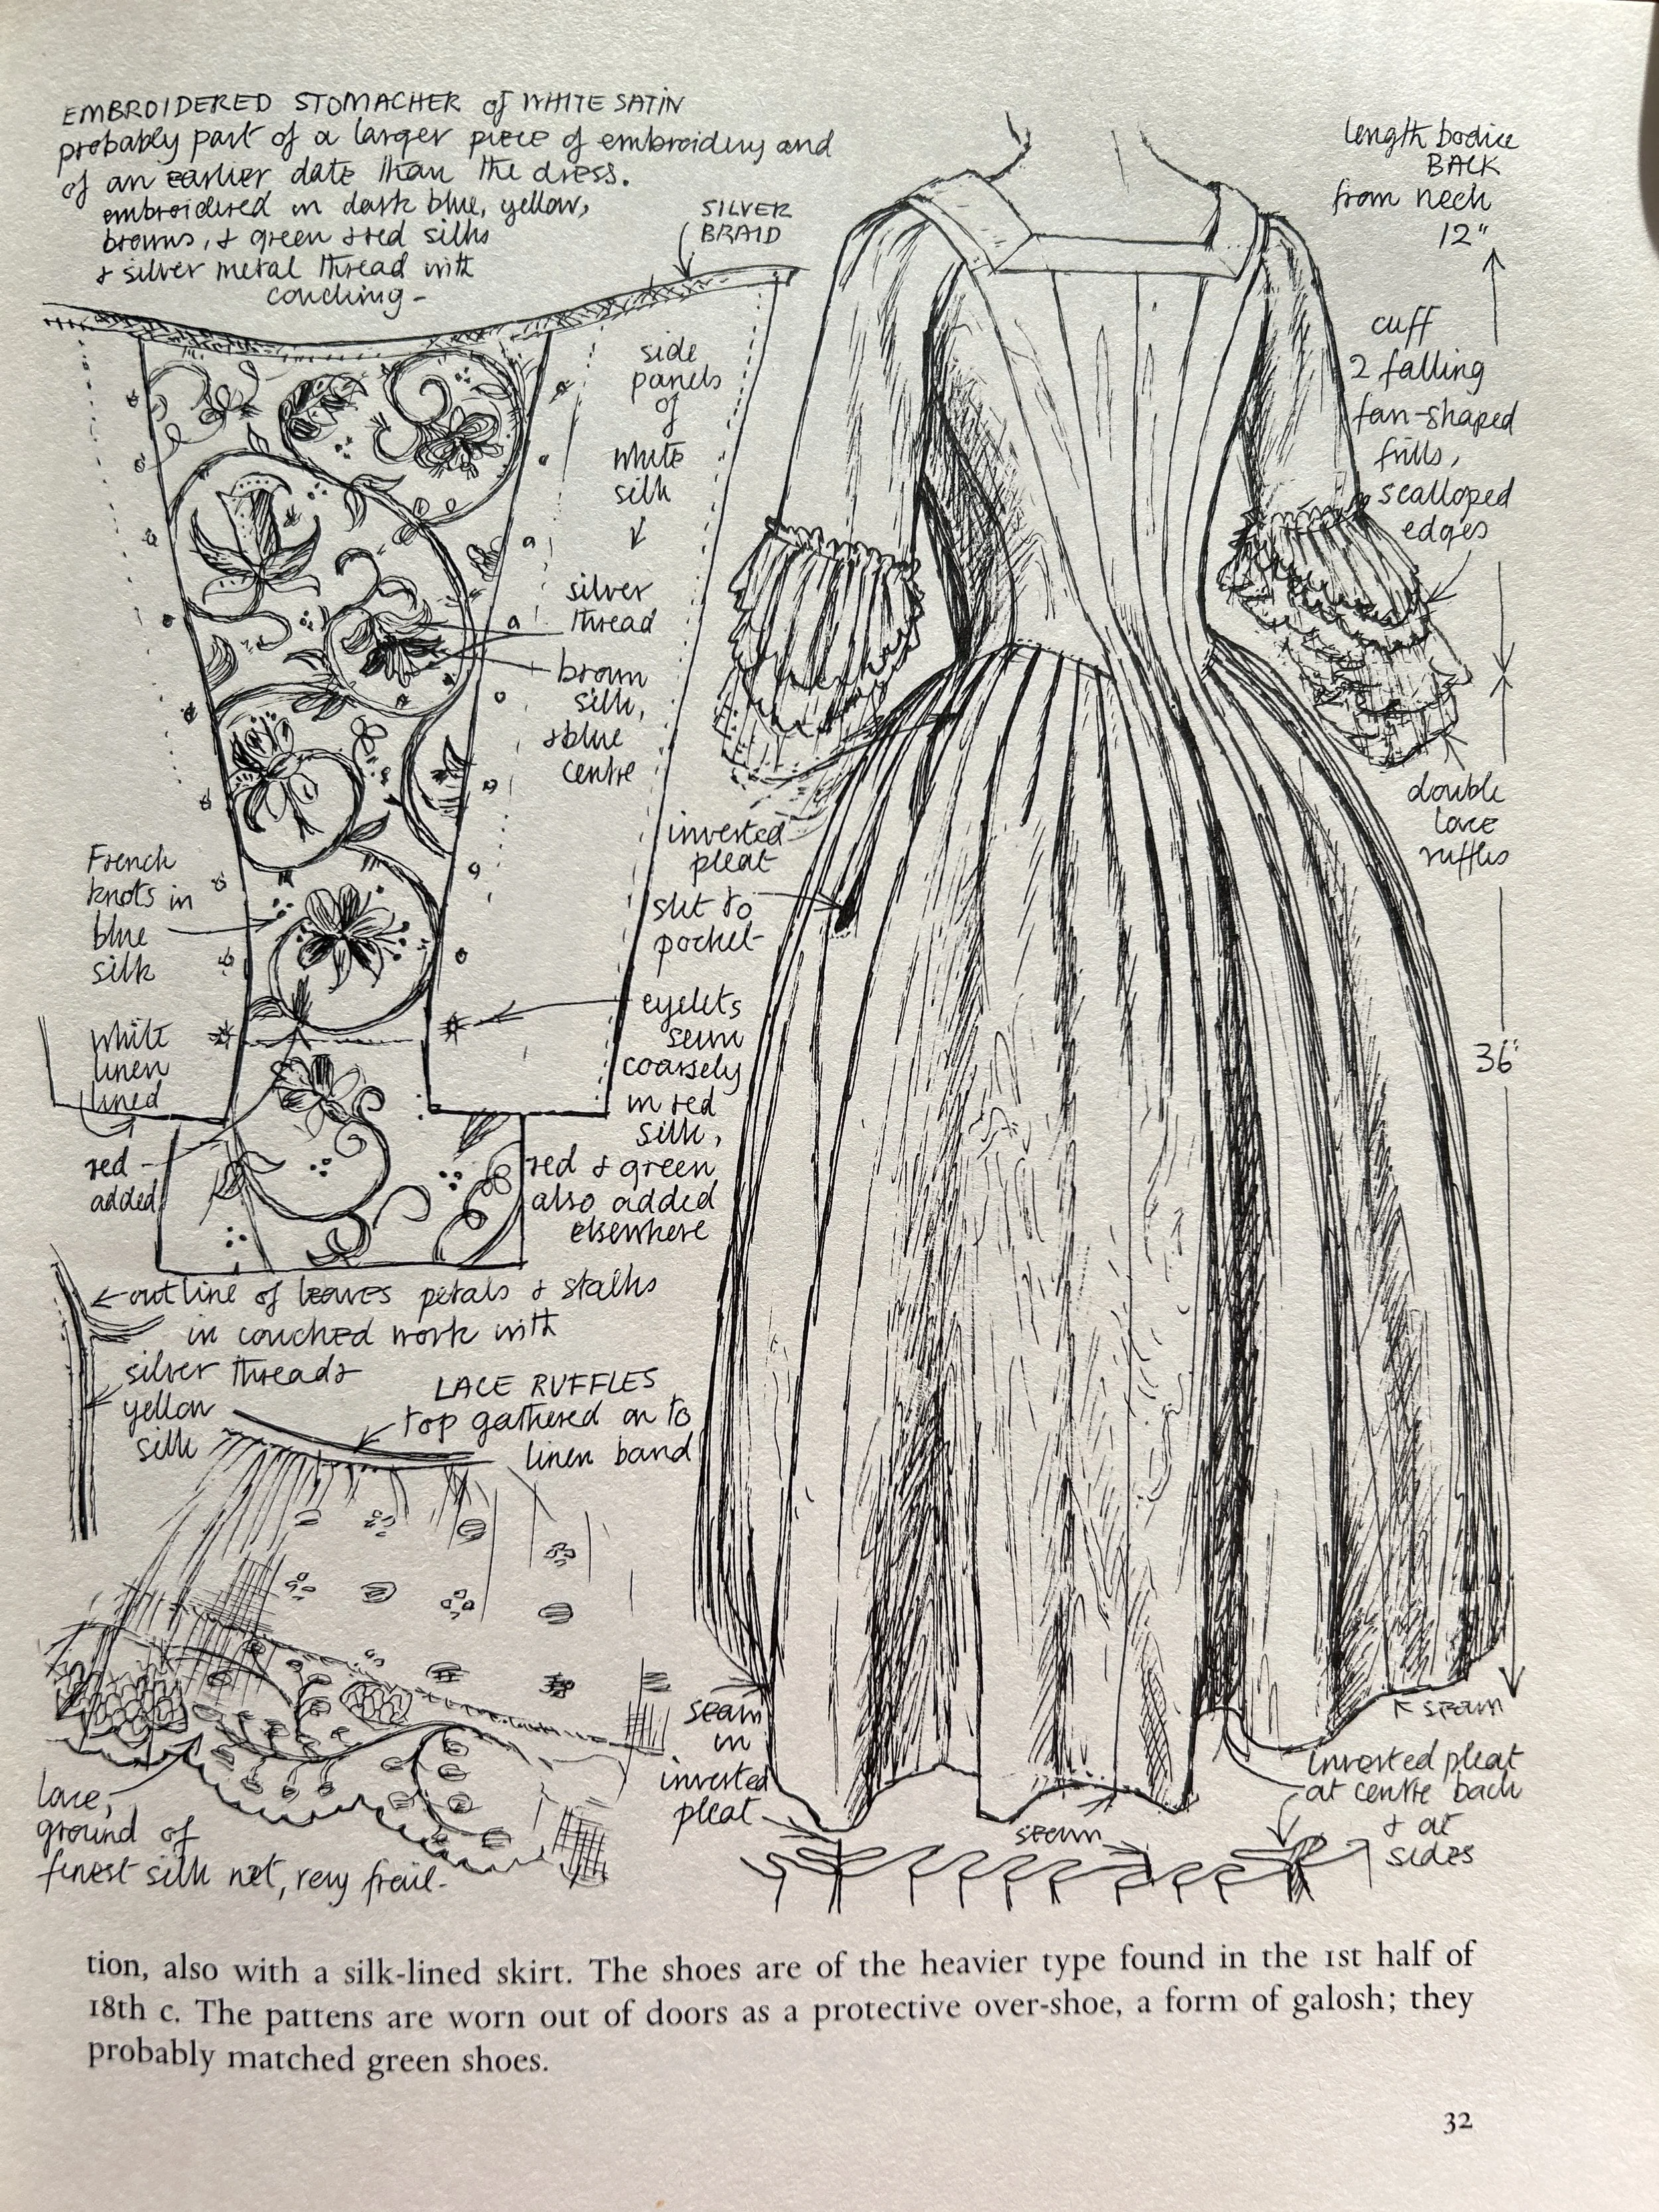 EMBROIDERED STOMACHER of WHITE SATIN
probably part of a larger piece of embroidery and
of an earlier date than the dress.
embroidered in dark blue, yellow,
browns, & green & red silks
& silver metal thread with
couching -
SILVER
BRAID
side
panels
of
white
silk
silver
thread
brown
silk,
& blue
centre
French
knots in
blue
silk
white
linen
lined
red
added
eyelets
sewn
coarsely
in red
silk,
red & green
also added
elsewhere
outline of leaves petals & stalks
in couched work with
silver threads
yellow
silk
LACE RUFFLES
top gathered on to
linen band
lace,
ground of
finest silk net, very frail-
length bodice
BACK
from neck
12"
cuff
2 falling
fan-shaped
frills,
scalloped
edges
double
lace
ruffles
inverted
pleat
slit to
pocket
36"
seam
in
inverted
pleat
seam
seam
inverted pleat
at centre back
& at
sides
tion, also with a silk-lined skirt. The shoes are of the heavier type found in the 1st half of
18th c. The pattens are worn out of doors as a protective over-shoe, a form of galosh; they
probably matched green shoes.
32